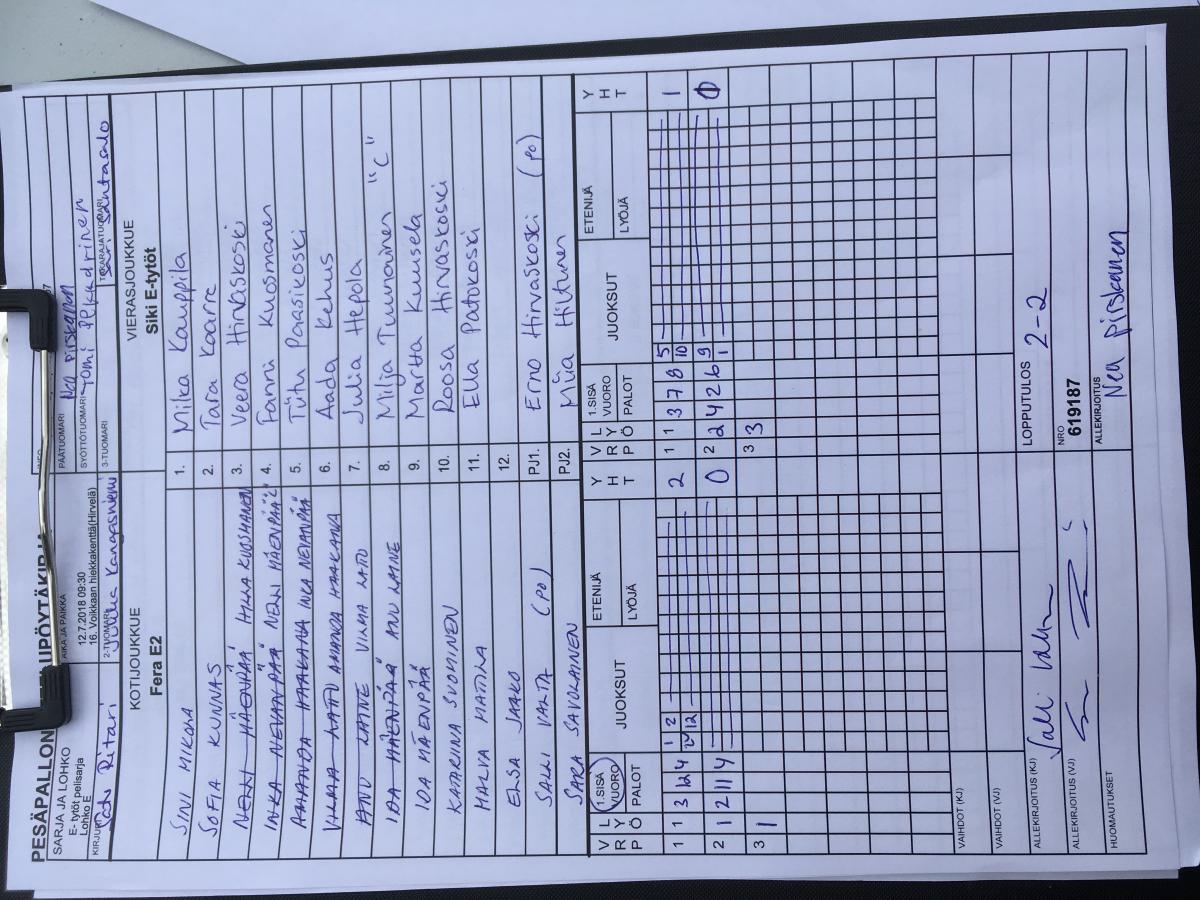 PESÄPALLON
SARJA JA LOHKO
E- tytöt pelisarja
Lohko E
AIKA JA PAIKKA
12.7.2018 09:30
16. Voikkaan hiekkakenttä(Hirvelä)
PÄÄTUOMARI Nea Pirskanen
SYÖTTÖTUOMARI Tomi
KIRJURI Ritari
2-TUOMARI Jukka Kangasniemi
3-TUOMARI
TAKARAJATUOMARI
KOTIJOUKKUE
Fera E2
VIERASJOUKKUE
Siki E-tytöt
SINI MIKOLA 1. Milka Kauppila
SOFIA KUNNAS 2. Tara Kaarre
NELLI MÄENPÄÄ HILLA KUOSMANEN 3. Veera Hirvaskoski
INKA NEVANPÄÄ NELLI MÄENPÄÄ 4. Fanni Kuosmanen
AMANDA HAAKANA INKA NEVANPÄÄ 5. Tytti Parasikoski
VILMA LATU AMANDA HAAKANA 6. Aada Kehus
ANU LAINE VILMA LATU 7. Julia Hepola
IDA MÄENPÄÄ ANU LAINE 8. Milja Tuunainen "C"
IDA MÄENPÄÄ 9. Martta Kuusela
KATARIINA SUOMINEN 10. Roosa Hirvaskoski
MALVA MATTILA 11. Ella Patokoski
ELSA JAAKO 12.
SALLI VALTA (PO) PJ1. Erno Hirvaskoski (PO)
SARA SAVOLAINEN PJ2. Miia Hiltunen
V L
R Y
P Ö
1.SISÄ
VUORO
PALOT
JUOKSUT
ETENIJÄ
LYÖJÄ
Y
H
T
V L
R Y
P Ö
1.SISÄ
VUORO
PALOT
JUOKSUT
ETENIJÄ
LYÖJÄ
Y
H
T
1 1 3 12 4 1 2 2 1 1 3 7 8 5 5 10 1
2 1 2 11 4 0 2 2 4 2 6 9 1 0
3 1 3 3
VAIHDOT (KJ)
VAIHDOT (VJ)
LOPPUTULOS 2-2
ALLEKIRJOITUS (KJ) Salli Valta
NRO
619187
ALLEKIRJOITUS (VJ)
ALLEKIRJOITUS
Nea Pirskanen
HUOMAUTUKSET